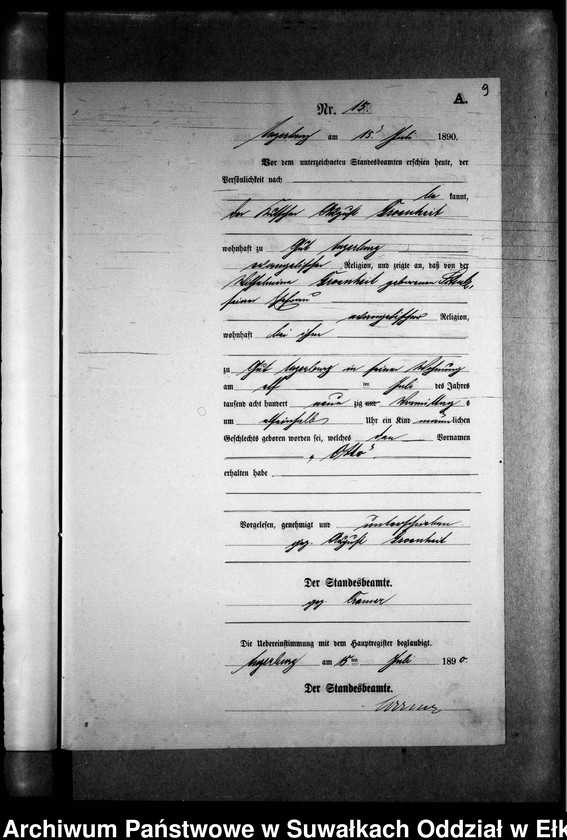 9
A.
Nr. 15.
am 15 Juli 1890.
Vor dem unterzeichneten Standesbeamten erschien heute, der
Persönlichkeit nach
be kannt,
der August
wohnhaft zu Gut
evangelischer Religion, und zeigte an, daß von der
Wilhelmine geborenen
seiner Ehefrau
evangelischer Religion,
wohnhaft bei ihm
zu Gut in seiner Wohnung
am elf ten Juli des Jahres
tausend acht hundert neun zig Vormittag s
um elfeinhalb Uhr ein Kind männlichen
Geschlechts geboren worden sei, welches den Vornamen
„Otto"
erhalten habe
Vorgelesen, genehmigt und unterschrieben
gez. August
Der Standesbeamte.
gez.
Die Uebereinstimmung mit dem Hauptregister beglaubigt.
am 15ten Juli 1890.
Der Standesbeamte.
Archiwum Państwowe w Suwałkach Oddział w Ełk